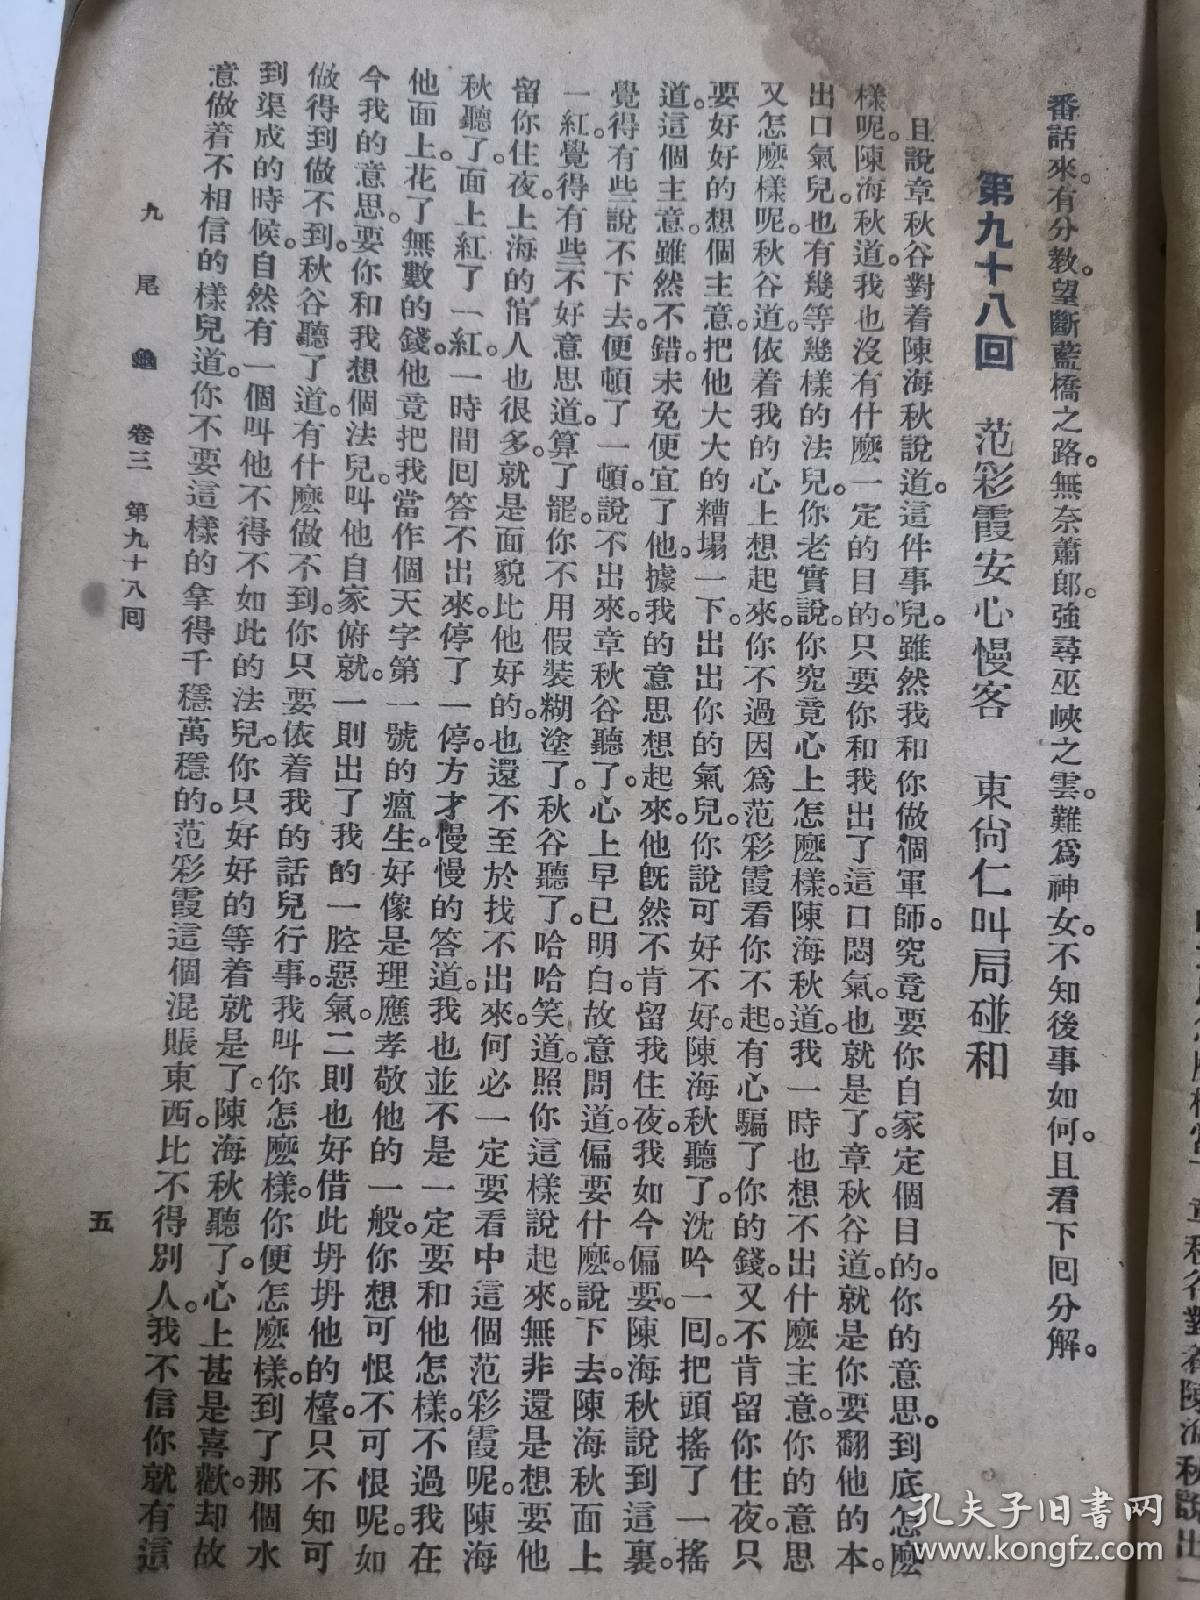 番話來。有分敎。望斷藍橋之路。無奈蕭郎。強尋巫峽之雲。難爲神女。不知後事如何。且看下回分解。
第九十八回　范彩霞安心慢客　東尙仁叫局碰和
且說章秋谷對着陳海秋說道。這件事兒。雖然我和你做個軍師。究竟要你自家定個目的。你的意思。到底怎麽
樣呢。陳海秋道。我也沒有什麽一定的目的。只要你和我出了這口悶氣。也就是了。章秋谷道。就是你要翻他的本。
出口氣兒。也有幾等幾樣的法兒。你老實說。你究竟心上怎麽樣。陳海秋道。我一時也想不出什麽主意。你的意思
又怎麽樣呢。秋谷道。依着我的心上想起來。你不過因爲范彩霞看你不起。有心騙了你的錢。又不肯留你住夜。只
要好好的想個主意。把他大大的糟塌一下。出出你的氣兒。你說可好不好。陳海秋聽了。沈吟一回。把頭搖了一搖
道。這個主意。雖然不錯。未免便宜了他。據我的意思想起來。他旣然不肯留我住夜。我如今偏要。陳海秋說到這裏。
覺得有些說不下去。便頓了一頓。說不出來。章秋谷聽了。心上早已明白。故意問道。偏要什麽。說下去。陳海秋面上
一紅。覺得有些不好意思道。算了罷。你不用假裝糊塗了。秋谷聽了。哈哈笑道。照你這樣說起來。無非還是想要他
留你住夜。上海的倌人也很多。就是面貌比他好的。也還不至於找不出來。何必一定要看中這個范彩霞呢。陳海
秋聽了。面上紅了一紅。一時間回答不出來。停了一停。方才慢慢的答道。我也並不是一定要和他怎樣。不過我在
他面上。花了無數的錢。他竟把我當作個天字第一號的瘟生。好像是理應孝敬他的一般。你想可恨不可恨呢。如
今我的意思。要你和我想個法兒。叫他自家俯就。一則出了我的一腔惡氣。二則也好借此坍坍他的檯。只不知可
做得到做不到。秋谷聽了道。有什麽做不到。你只要依着我的話兒行事。我叫你怎麽樣。你便怎麽樣。到了那個水
到渠成的時候。自然有一個叫他不得不如此的法兒。你只好好的等着就是了。陳海秋聽了。心上甚是喜歡。却故
意做着不相信的樣兒道。你不要這樣的拿得千穩萬穩的。范彩霞這個混賬東西。比不得別人。我不信你就有這
九尾龜　卷三　第九十八回　五
孔夫子旧書网
www.kongfz.com